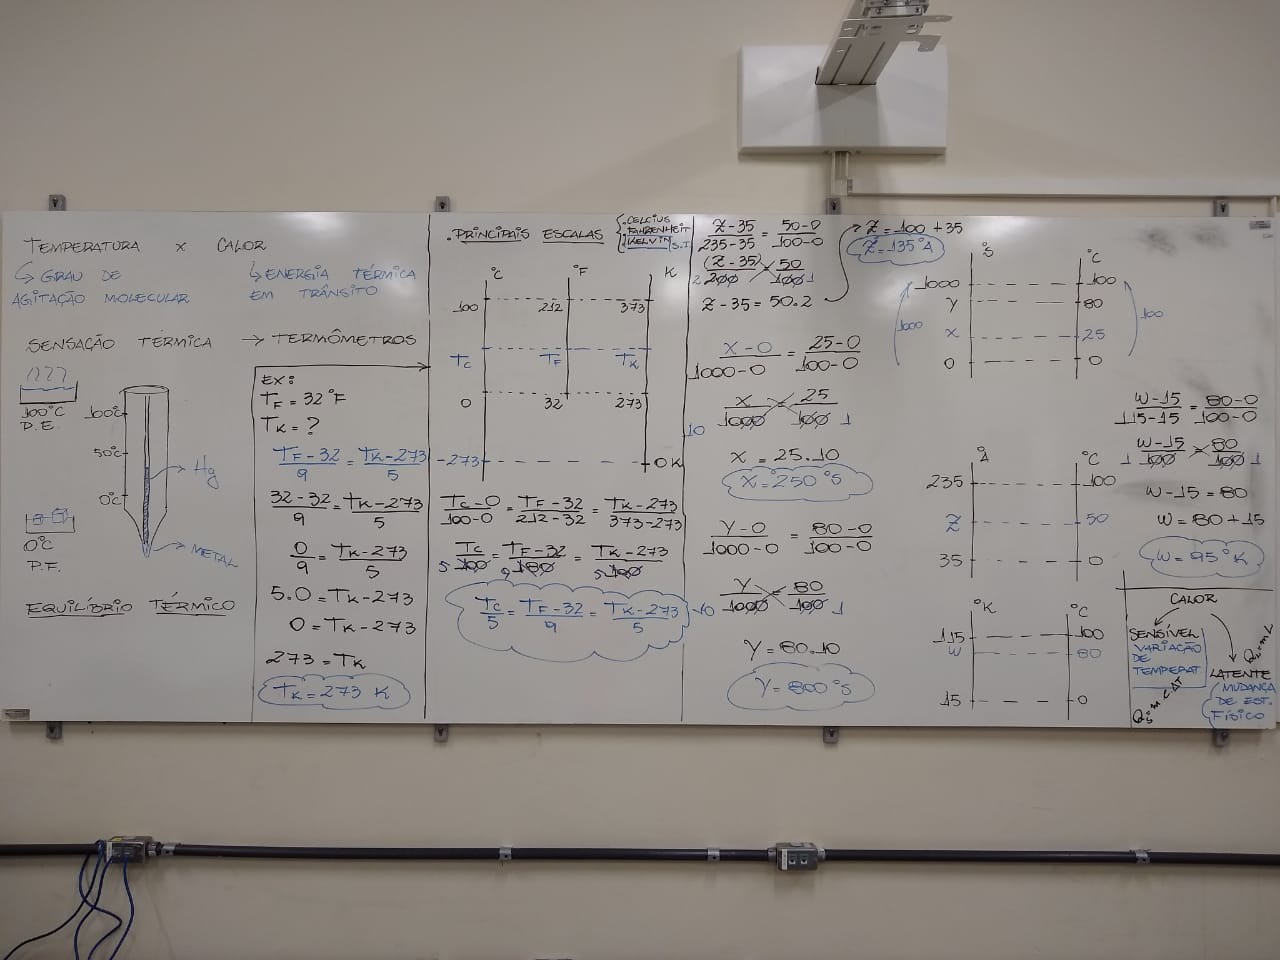 TEMPERATURA x CALOR
↳ GRAU DE
AGITAÇÃO MOLECULAR
↳ ENERGIA TÉRMICA
EM TRÂNSITO
SENSAÇÃO TÉRMICA → TERMÔMETROS
100°C
P.E.
0°C
P.F.
100°C
50°C
0°C
→ Hg
→ METAL
EQUILÍBRIO TÉRMICO
EX:
TF = 32°F
TK = ?
TF-32/9 = TK-273/5
32-32/9 = TK-273/5
0/9 = TK-273/5
5.0 = TK-273
0 = TK-273
273 = TK
TK = 273 K
.PRINCIPAIS ESCALAS
.CELCIUS
.FAHRENHEIT
.KELVIN (S.I)
°C °F K
100 212 373
TC TF TK
0 32 273
-273 0K
TC-0/100-0 = TF-32/212-32 = TK-273/373-273
5 TC/100 = 9 TF-32/180 = 5 TK-273/100
TC/5 = TF-32/9 = TK-273/5
Z-35/235-35 = 50-0/100-0
2 (Z-35)/200 = 50/100 1
Z-35 = 50.2
Z = 100+35
Z = 135°A
X-0/1000-0 = 25-0/100-0
10 X/1000 = 25/100 1
X = 25.10
X = 250°S
Y-0/1000-0 = 80-0/100-0
10 Y/1000 = 80/100 1
Y = 80.10
Y = 800°S
°S °C
1000 100
Y 80
X 25
0 0
1000
100
°A °C
235 100
Z 50
35 0
°K °C
115 100
W 80
15 0
W-15/115-15 = 80-0/100-0
1 W-15/100 = 80/100 1
W-15 = 80
W = 80+15
W = 95°K
CALOR
SENSÍVEL
VARIAÇÃO
DE
TEMPERAT.
QS = m.c.ΔT
LATENTE
MUDANÇA
DE EST.
FÍSICO